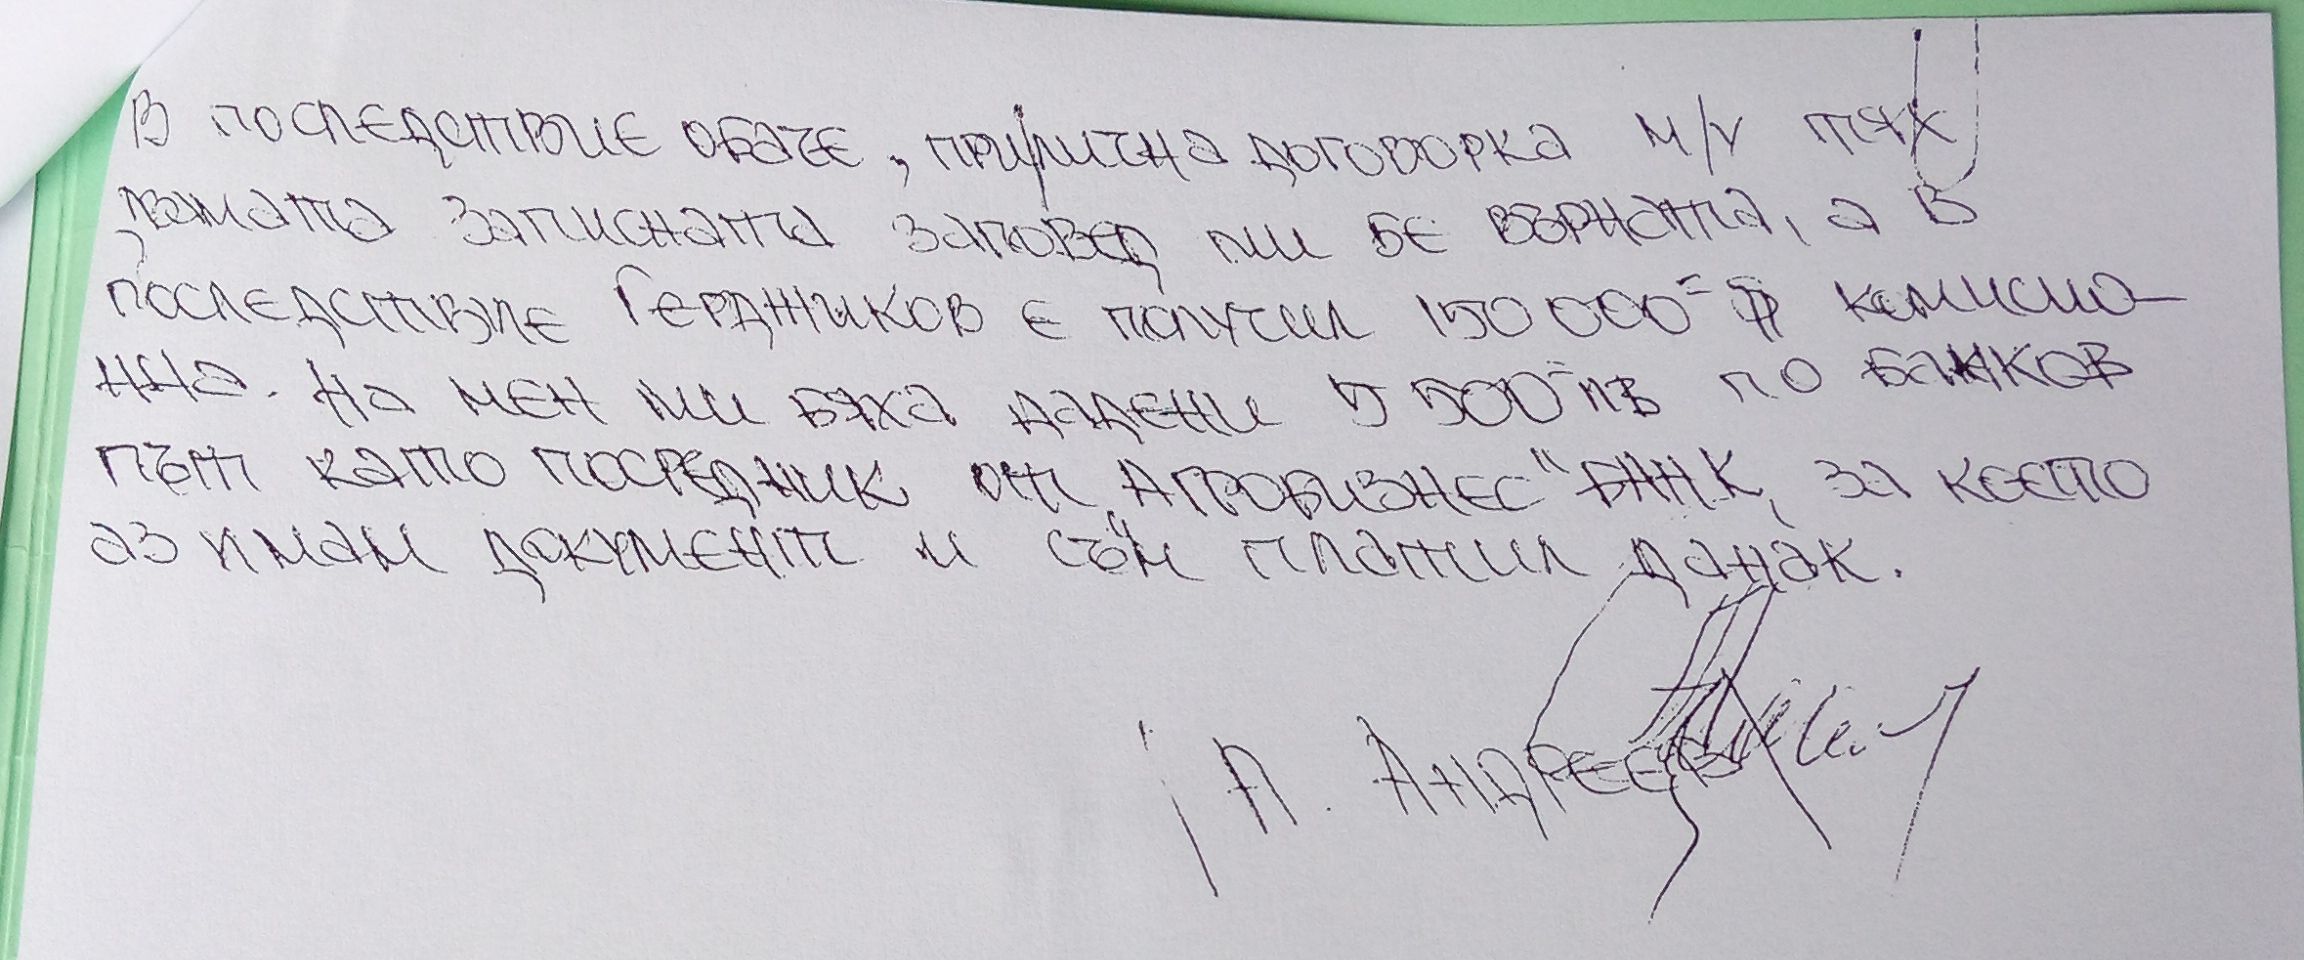 В последствие обаче, при лична договорка м/у тях
двамата записната заповед ми бе върната, а в
последствие Герджиков е получил 150 000= $ комисио-
нна. На мен ми бяха дадени 5 500= лв по банков
път като посредник от "Агробизнес" БАНК, за което
аз имам документ и съм платил данак.
П. Андреев